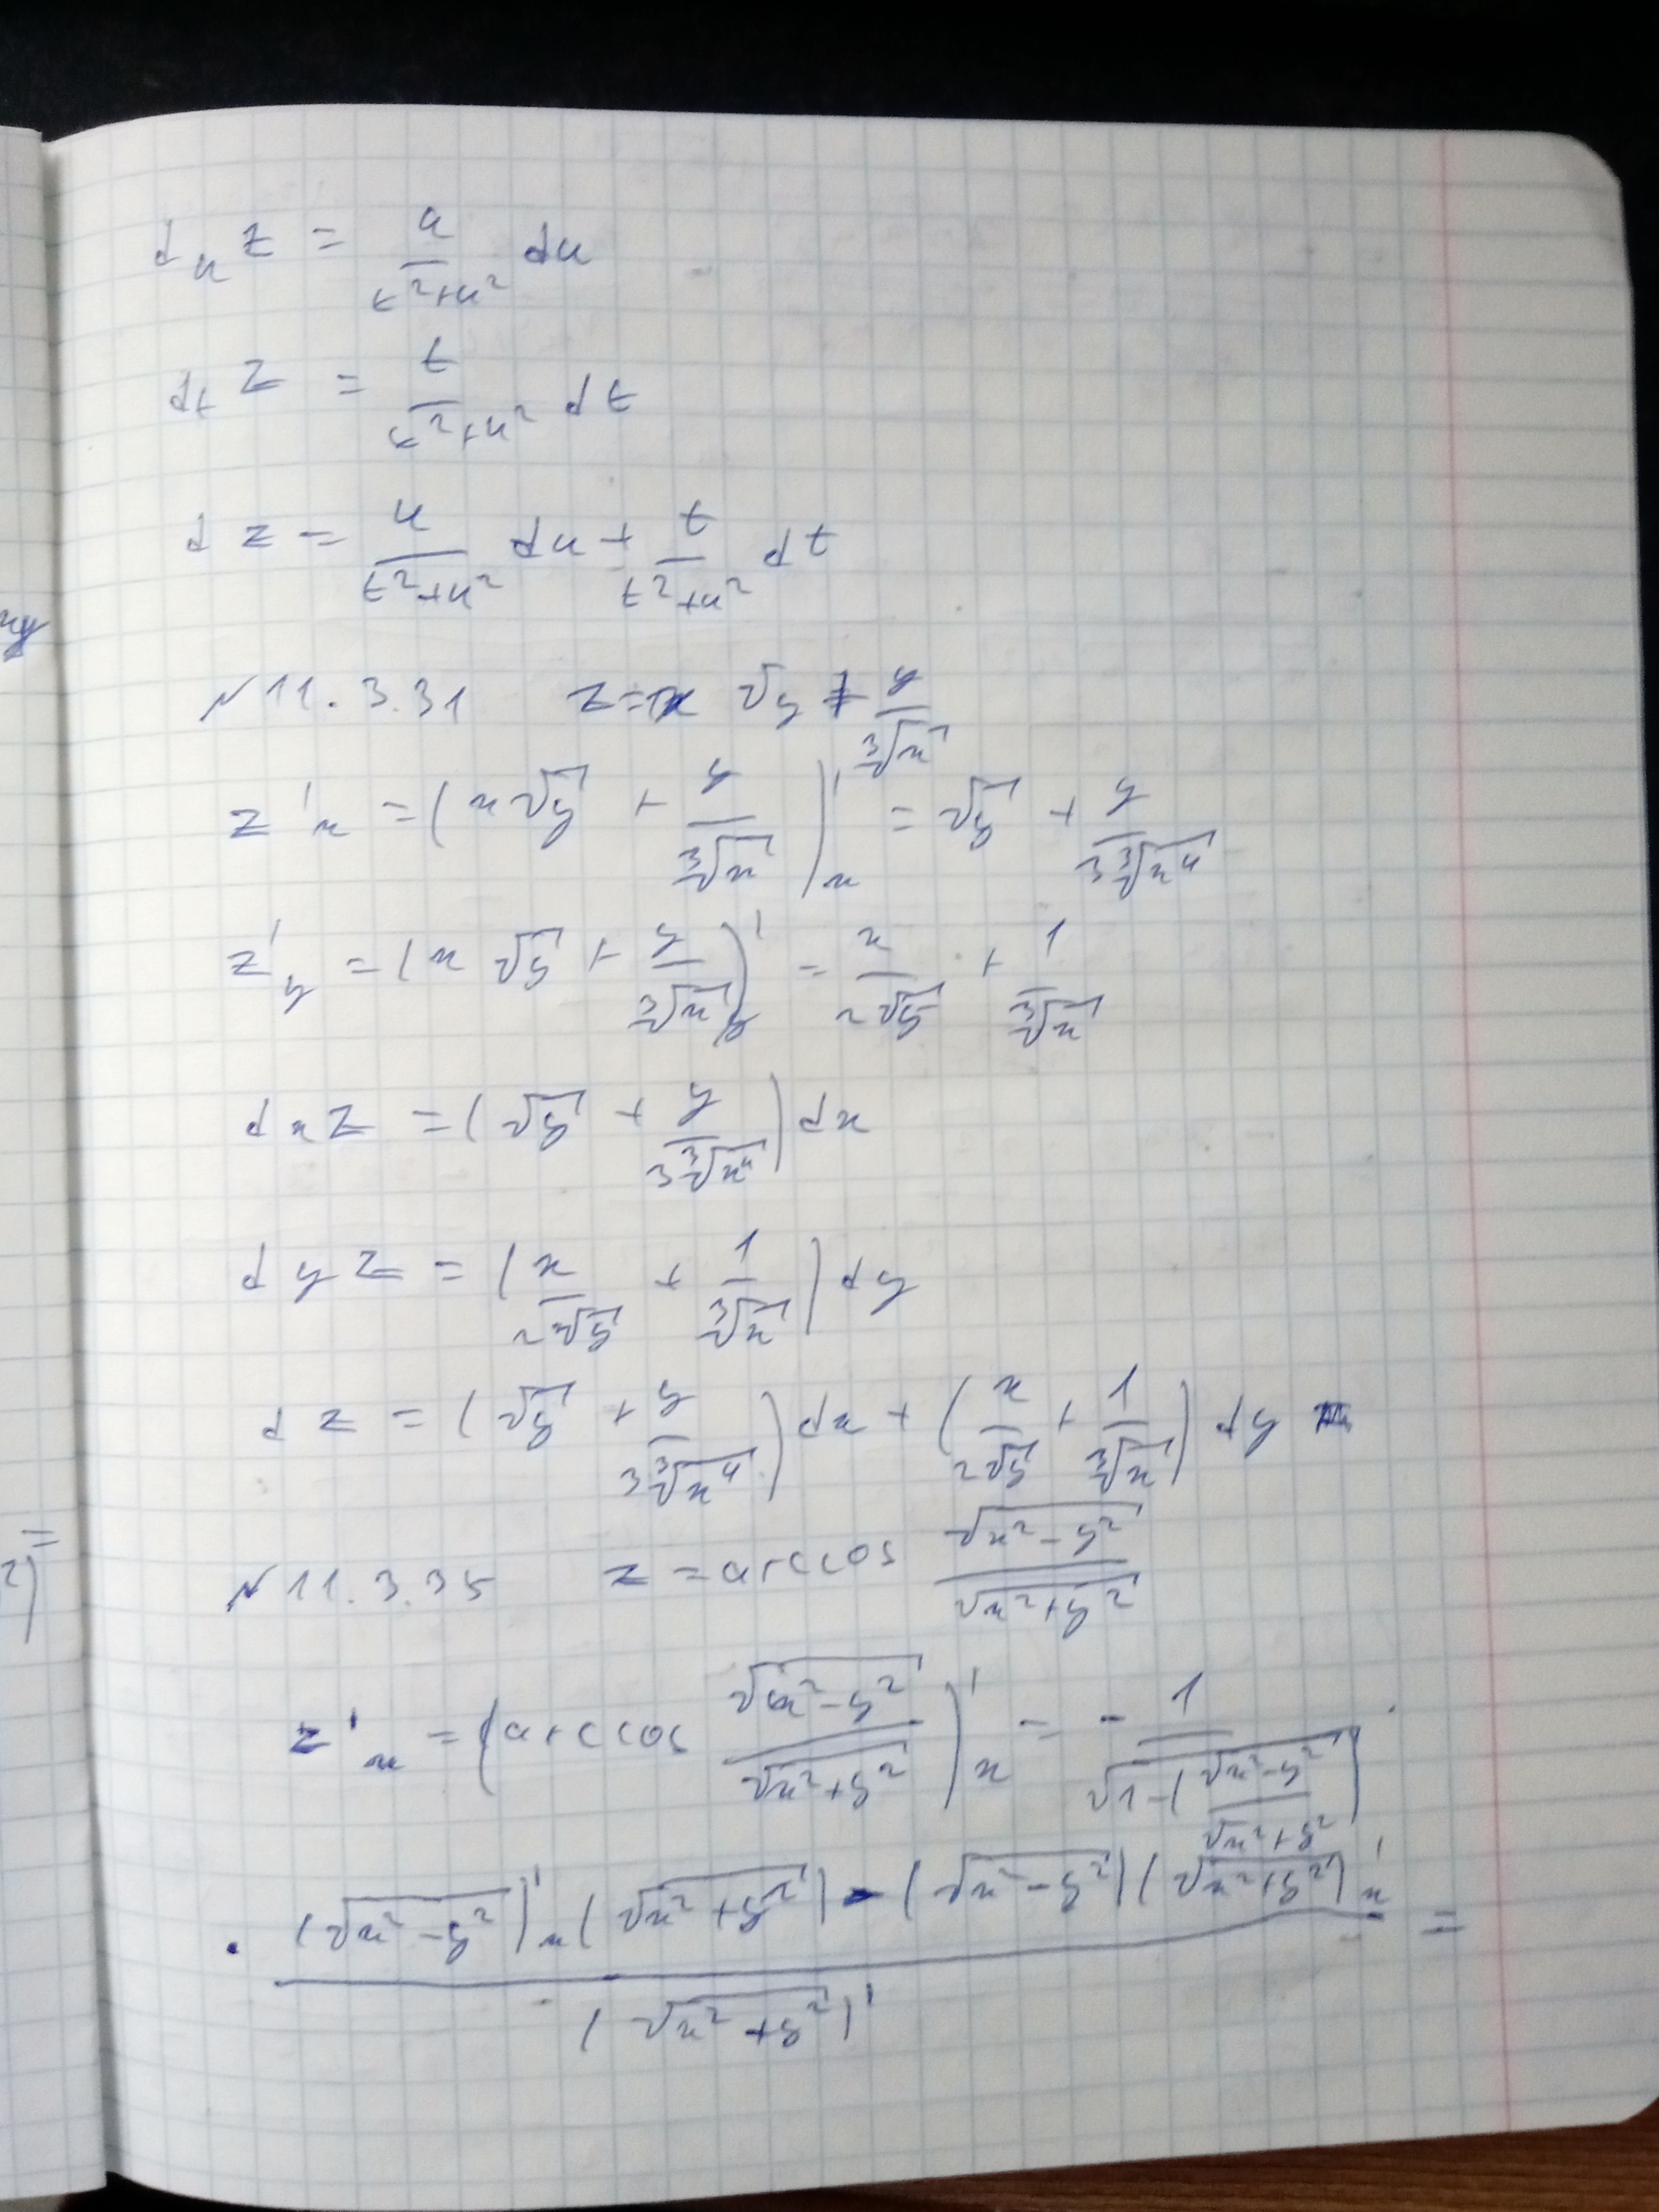 d_u z = u/(t²+u²) du
d_t z = t/(t²+u²) dt
dz = u/(t²+u²) du + t/(t²+u²) dt
№11.3.31 z = x √y + y/∛x
z'_x = (x√y + y/∛x)'_x = √y + y/(3∛x⁴)
z'_y = (x√y + y/∛x)'_y = x/(2√y) + 1/∛x
d_x z = (√y + y/(3∛x⁴)) dx
d_y z = (x/(2√y) + 1/∛x) dy
dz = (√y + y/(3∛x⁴)) dx + (x/(2√y) + 1/∛x) dy
№11.3.35 z = arccos √(x²-y²)/√(x²+y²)
z'_x = (arccos √(x²-y²)/√(x²+y²))'_x = - 1/√(1-(√(x²-y²)/√(x²+y²))) ·
· ((√(x²-y²))'_x (√(x²+y²)) - (√(x²-y²))(√(x²+y²))'_x)/(√(x²+y²))' =